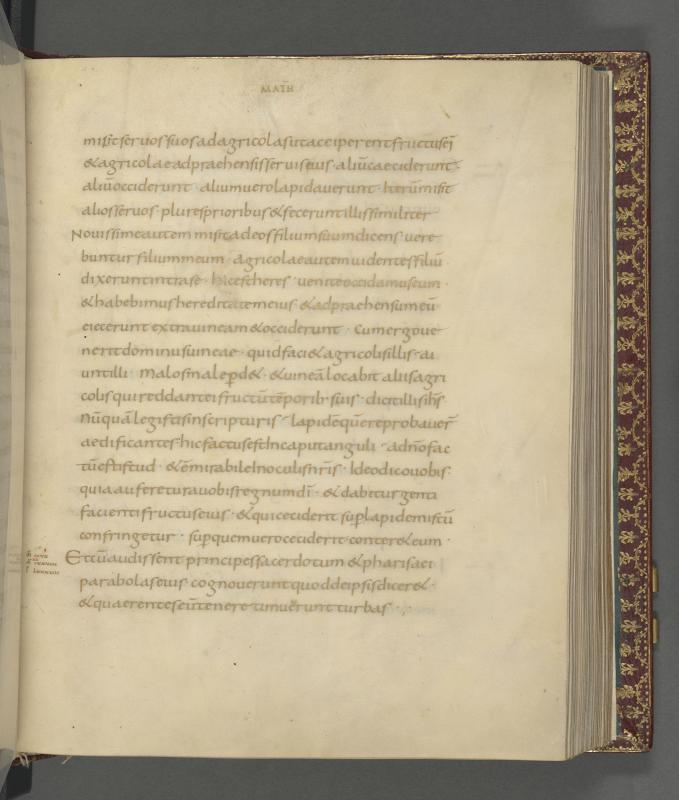 MATH
misit servos suos ad agricolas ut acciperent fructus ei
& agricolae adpraehensis servis eius · aliū caeciderunt ·
aliū occiderunt · alium vero lapidaverunt · Iterū misit
alios servos · plures prioribus & fecerunt illis similiter
Novissime autem misit ad eos filium suum dicens · vere
buntur filium meum · Agricolae autem videntes filiū
dixerunt intra se · hic est heres · venite occidamus eum ·
& habebimus hereditatem eius · & adpraehensum eū
eiecerunt extra vineam & occiderunt · Cum ergo ve
nerit dominus vineae · quid faci& agricolis illis · ai
unt illi · Malos male p̄d& · & vineā locabit aliis agri
colis qui reddant ei fructū tēporib· suis · dicit illis ih̄s
Nūquā legistis in scripturis · lapidē quē reprobaver̄
aedificantes hic factus est In caput anguli · A dn̄o fac
tū est istud · & ē mirabile In oculis nr̄is · Ideo dico vobis ·
quia auferetur a vobis regnum dī · & dabitur genti
facienti fructus eius · & qui ceciderit sup̄ lapidem istū
confringetur · sup̄ quem vero ceciderit · conter& eum ·
Et cū audissent principes sacerdotum & pharisaei
parabolas eius · cognoverunt quod de ipsis dicer& ·
& quaerentes eū tenere timuerunt turbas · ,